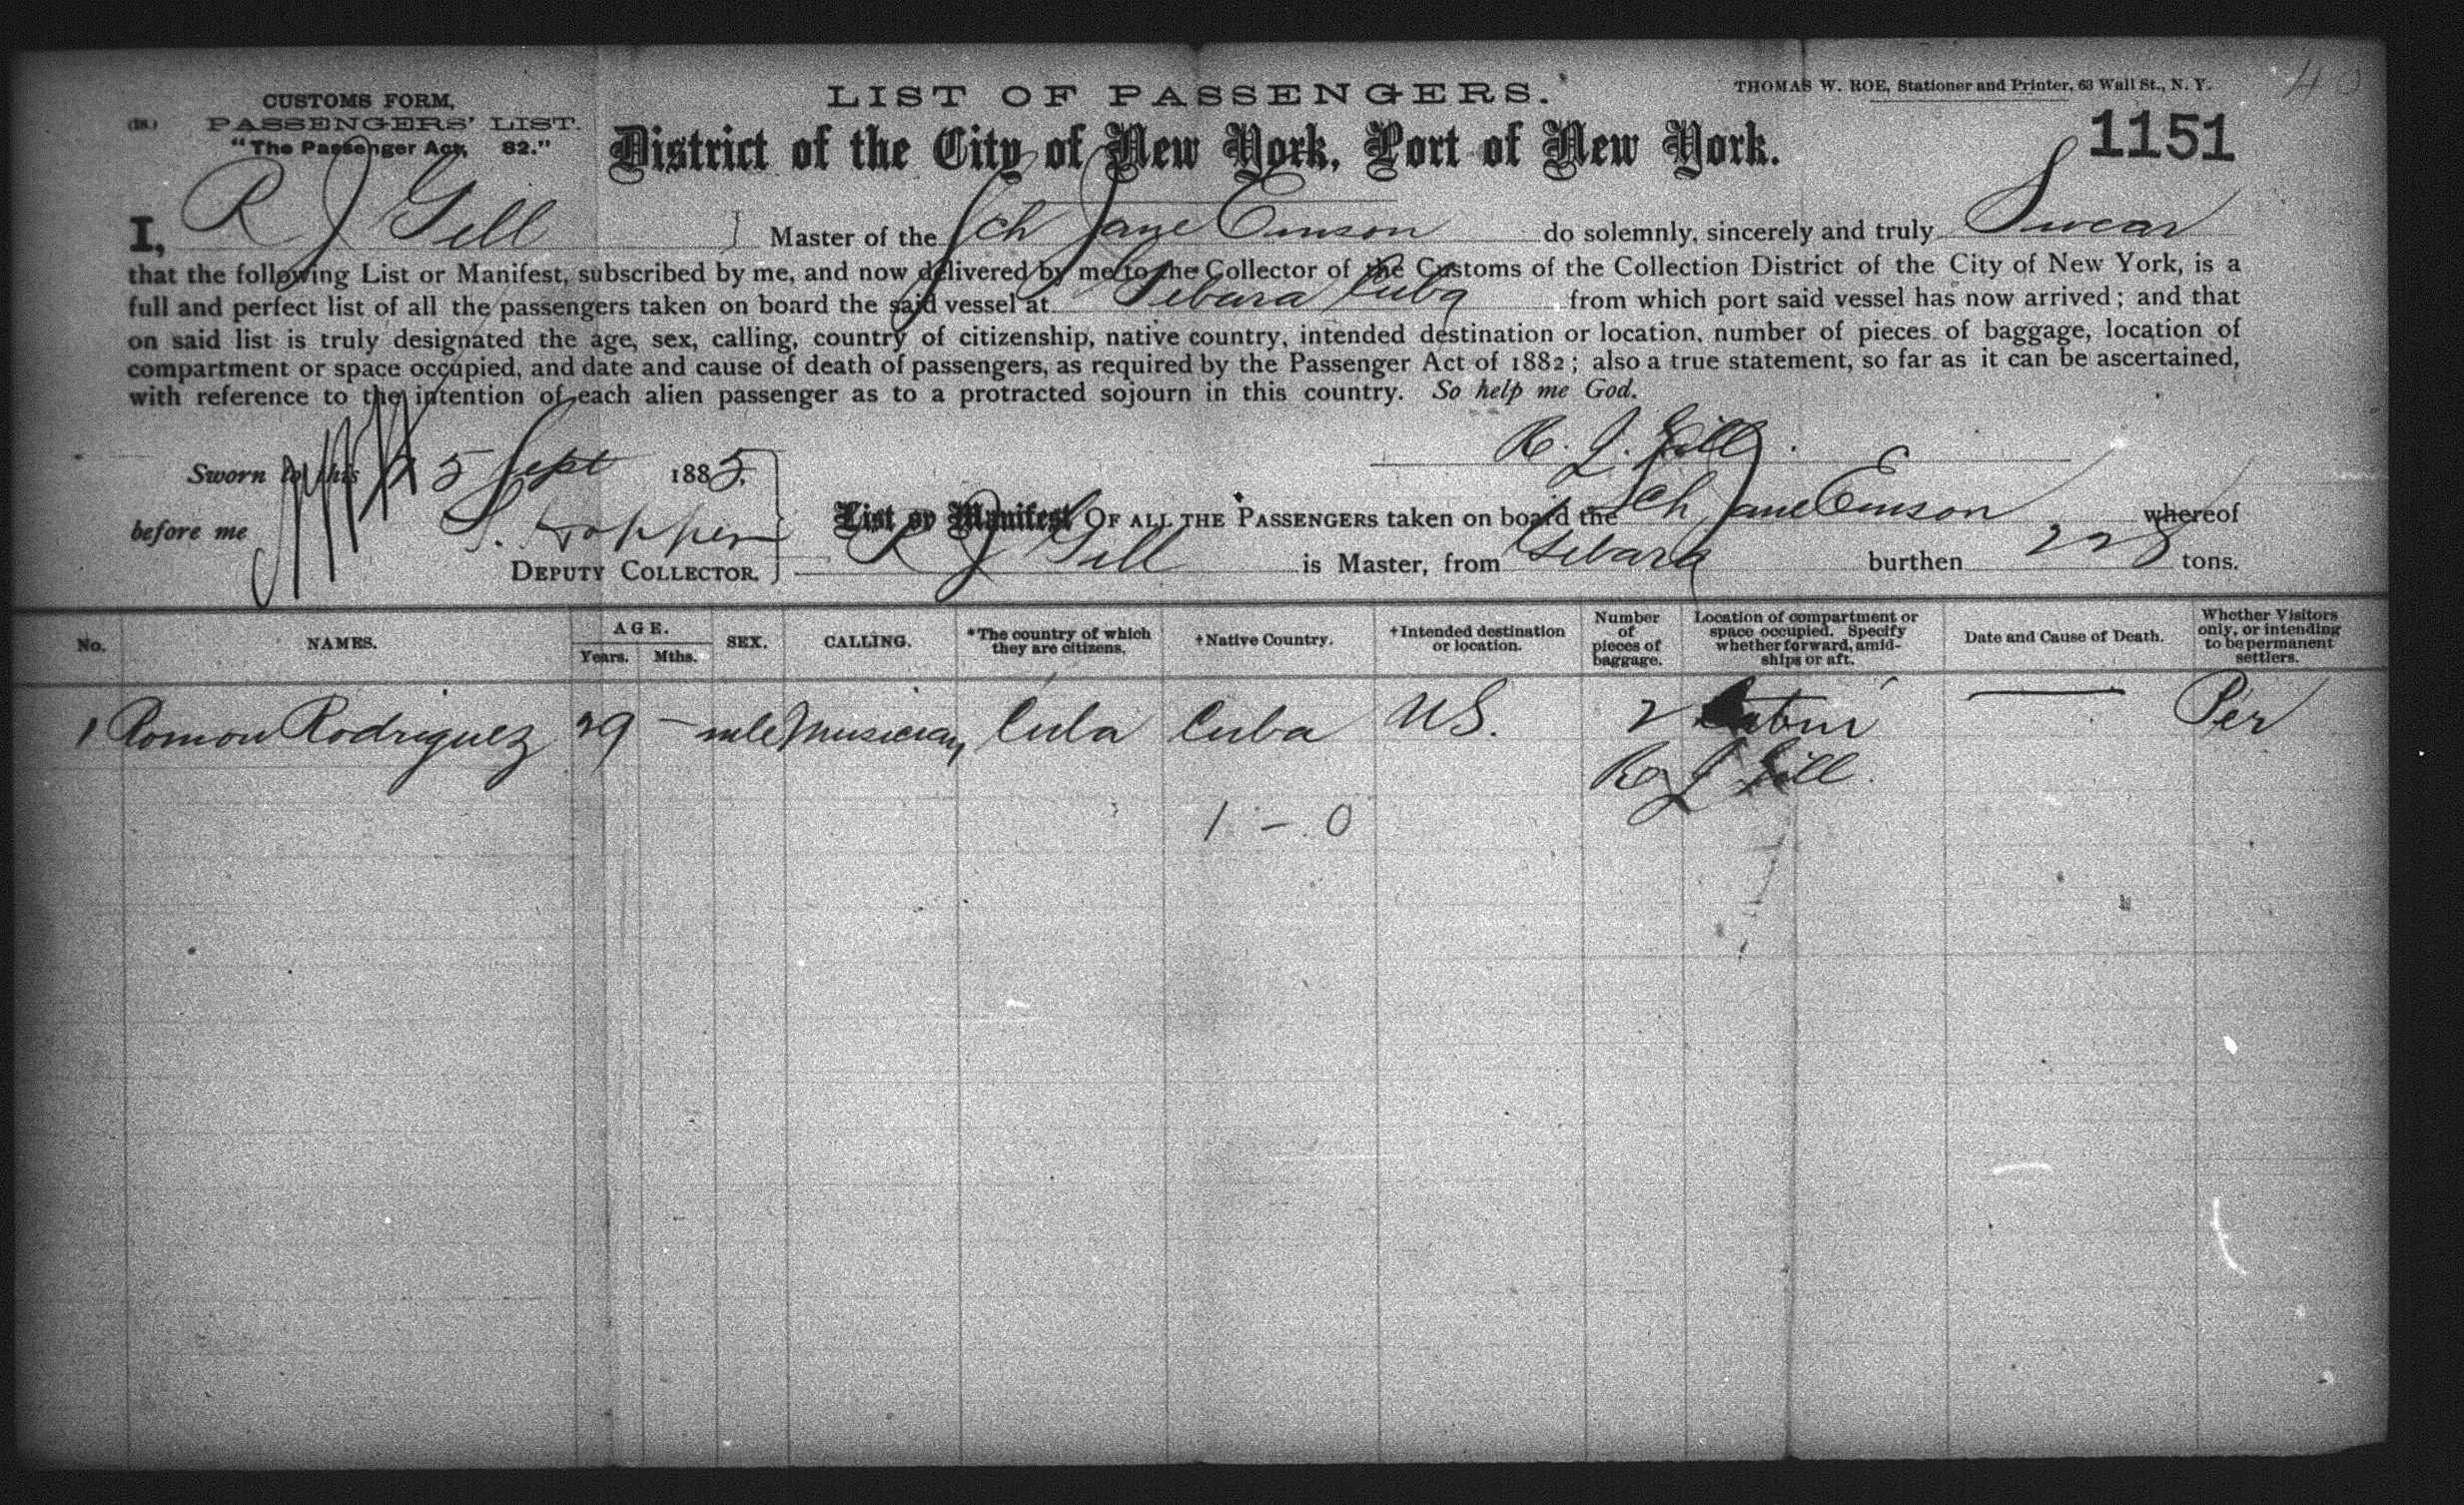 LIST OF PASSENGERS.
THOMAS W. ROE, Stationer and Printer, 63 Wall St., N. Y.
40
CUSTOMS FORM,
PASSENGERS' LIST.
"The Passenger Act, 82."
District of the City of New York, Port of New York.
1151
I, R J Gill Master of the Sch Jane Emson do solemnly, sincerely and truly Swear
that the following List or Manifest, subscribed by me, and now delivered by me to the Collector of the Customs of the Collection District of the City of New York, is a
full and perfect list of all the passengers taken on board the said vessel at Gebara Cuba from which port said vessel has now arrived; and that
on said list is truly designated the age, sex, calling, country of citizenship, native country, intended destination or location, number of pieces of baggage, location of
compartment or space occupied, and date and cause of death of passengers, as required by the Passenger Act of 1882; also a true statement, so far as it can be ascertained,
with reference to the intention of each alien passenger as to a protracted sojourn in this country. So help me God.
R. J. Gill
Sworn to this 25 Sept 1885,
before me S. Hopper
DEPUTY COLLECTOR.
List or Manifest OF ALL THE PASSENGERS taken on board the Sch Jane Emson whereof
R J Gill is Master, from Gebara burthen 228 tons.
No. NAMES. AGE. Years. Mths. SEX. CALLING. *The country of which they are citizens. †Native Country. †Intended destination or location. Number of pieces of baggage. Location of compartment or space occupied. Specify whether forward, amidships or aft. Date and Cause of Death. Whether Visitors only, or intending to be permanent settlers.
1 Romon Rodriguez 29 — mle Musician Cuba Cuba US. 2 Cabin — Per
R J Gill
1 - 0